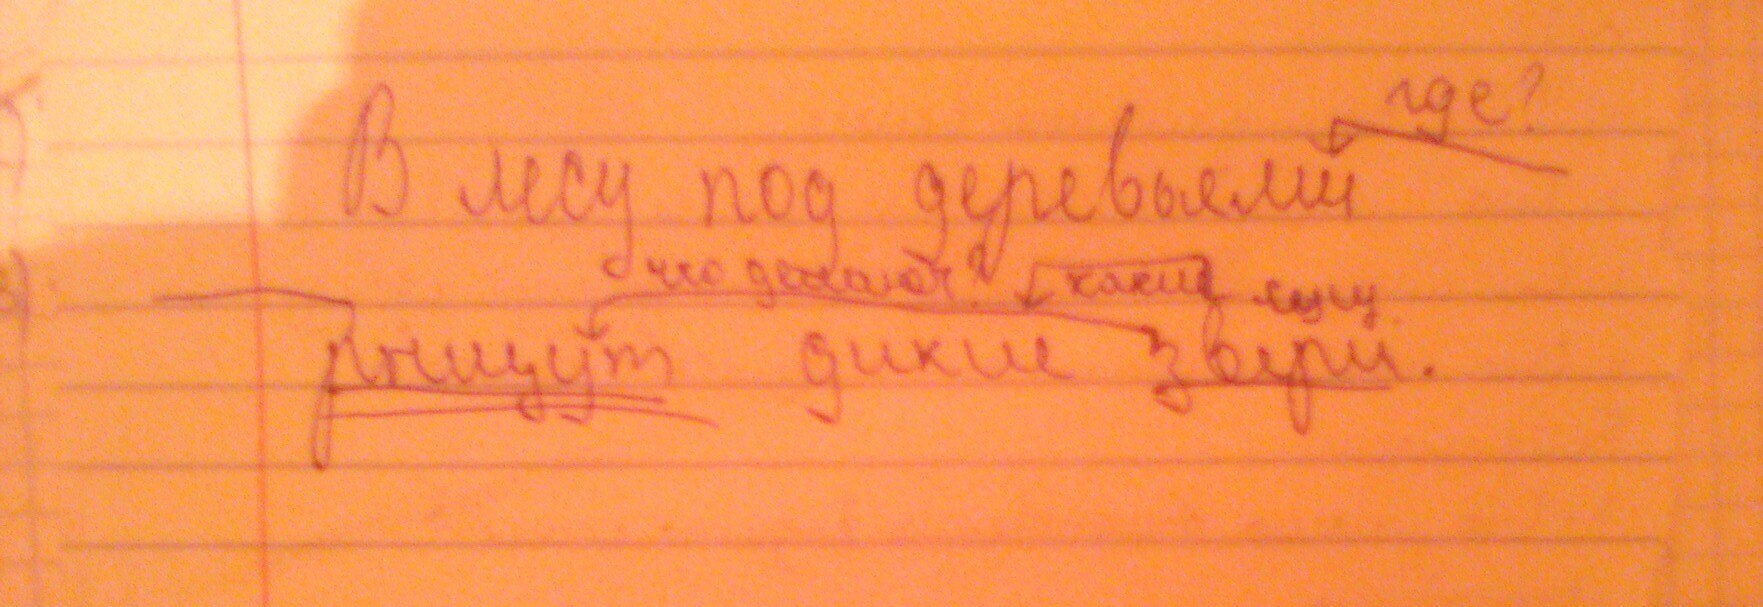 где?
В лесу под деревьями
что делают? какие сущ.
рыщут дикие звери.